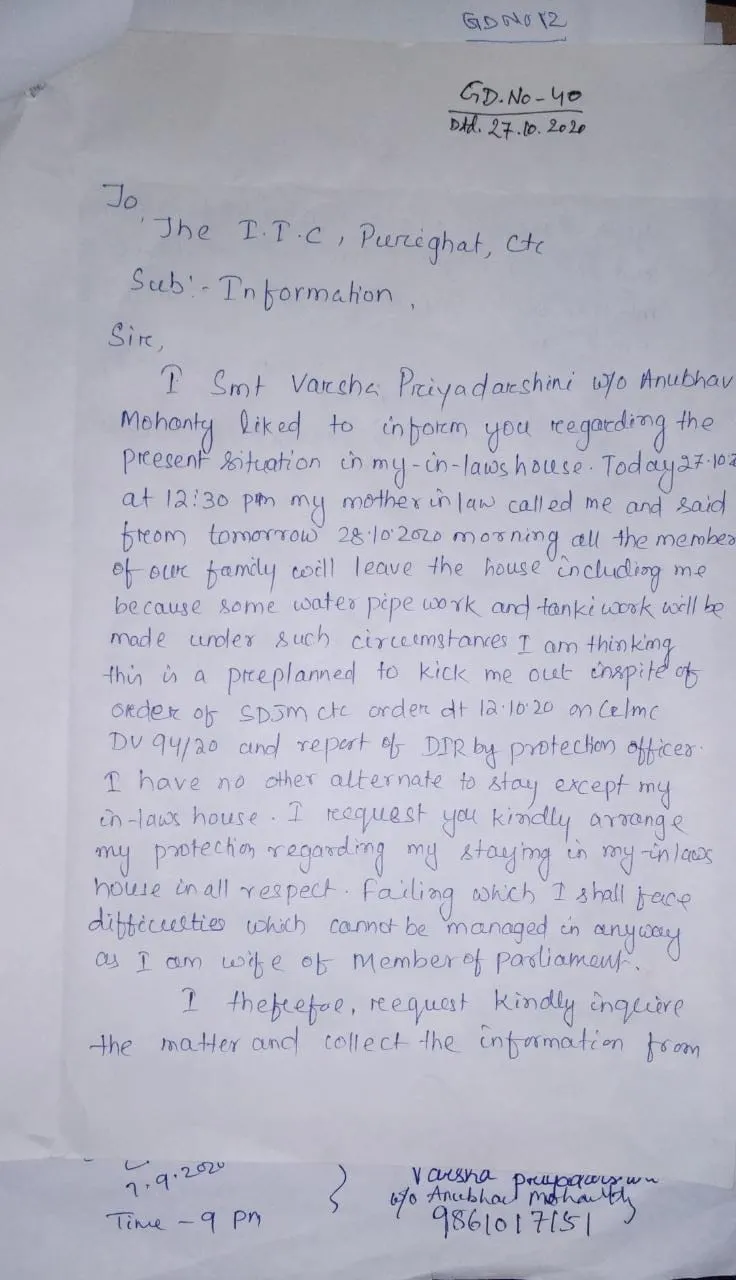 GDNO 12
GD.No-40
Dtd. 27.10.2020
To,
The I.I.C, Pureighat, Ctc
Sub:- Information,
Sir,
I Smt Varsha Priyadarshini w/o Anubhav
Mohanty liked to inform you regarding the
present situation in my-in-laws house. Today 27.10.2
at 12:30 pm my mother in law called me and said
from tomorrow 28.10.2020 morning all the member
of our family will leave the house including me
because some water pipe work and tanki work will be
made under such circumstances I am thinking
this is a preplanned to kick me out inspite of
order of SDJM ctc order dt 12.10.20 on
DV 94/20 and report of DIR by protection officer.
I have no other alternate to stay except my
in-laws house. I request you kindly arrange
my protection regarding my staying in my-in laws
house in all respect. Failing which I shall face
difficulties which cannot be managed in anyway
as I am wife of Member of parliament.
I request kindly inquire
the matter and collect the information from
7.9.2020
Time - 9 pm
Varsha
w/o Anubhav Mohanty
9861017151